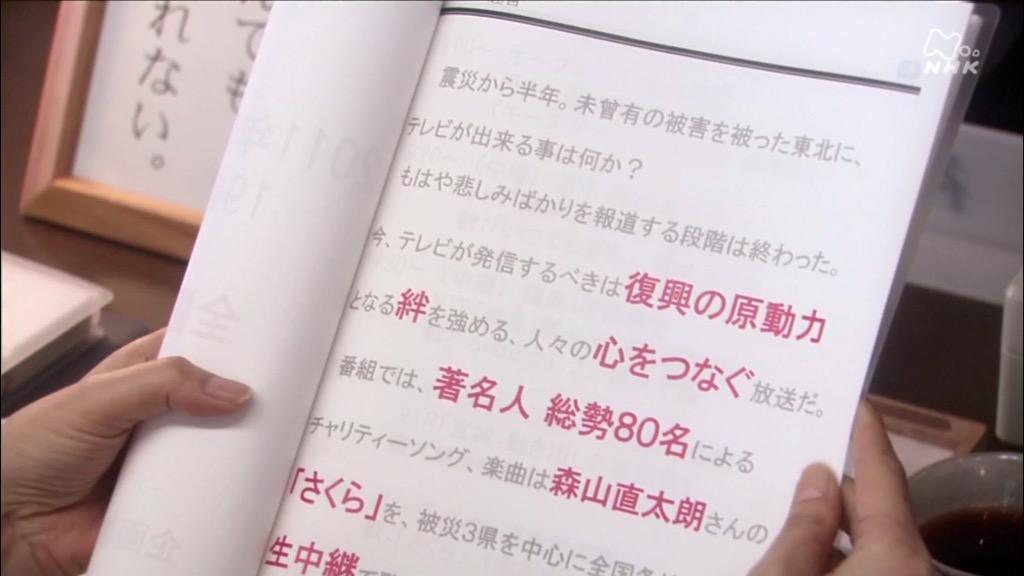 れない。
NHK
震災から半年。未曾有の被害を被った東北に、
テレビが出来る事は何か?
もはや悲しみばかりを報道する段階は終わった。
今、テレビが発信するべきは復興の原動力
となる絆を強める、人々の心をつなぐ放送だ。
番組では、著名人 総勢80名による
チャリティーソング、楽曲は森山直太朗さんの
「さくら」を、被災3県を中心に全国各
生中継で
2011年
19
全
企画